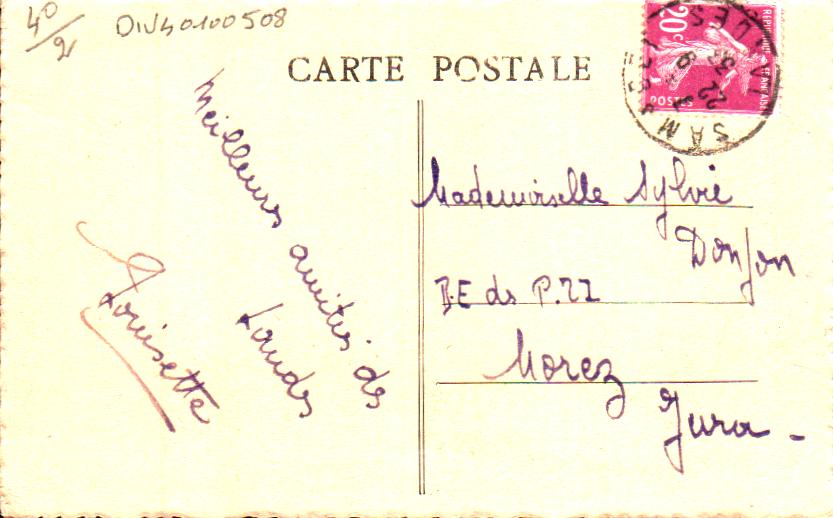 40/2
DIV40100508
CARTE POSTALE
20c
REPUBLIQUE FRANÇAISE
POSTES
22
Meilleures
amitiés des
Landes
Louisette
Mademoiselle Sylvie
Donjon
B.E ds P.TT
Morez
Jura -